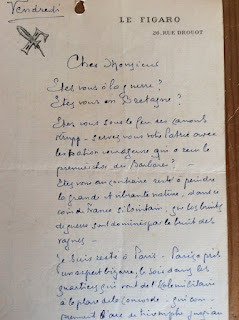 Vendredi
LE FIGARO
26, RUE DROUOT
Cher Monsieur
Etes vous à la guerre ?
Etes vous en Bretagne ?
Etes vous sous le feu des canons
Krupp - servez vous votre Patrie avec
le bataillon qui a reçu le
premier choc des Barbares ? -
Etes vous au contraire resté à peindre
la grande et vibrante nature, dans ce
coin de France si lointain, que les bruits
de guerre sont dominés par le bruit des
vagues -
Je suis resté à Paris - Paris a pris
un aspect bizarre, le soir dans les
quartiers qui vont de l'Ecole militaire
à la place de la Concorde - qui com-
prennent l'arc de triomphe jusqu'au